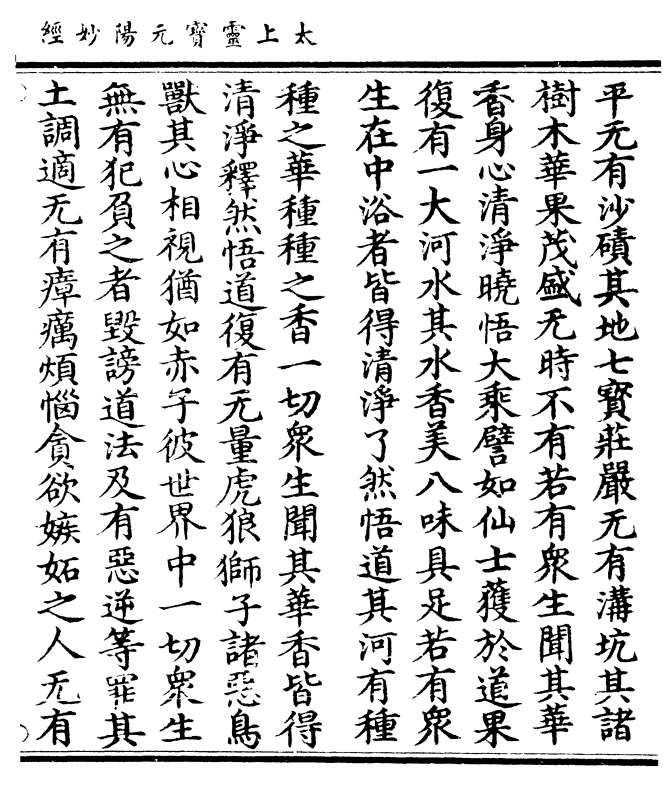 太上靈寶元陽妙經
平无有沙磧其地七寶莊嚴无有溝坑其諸
樹木華果茂盛无時不有若有衆生聞其華
香身心清淨曉悟大乘譬如仙士獲於道果
復有一大河水其水香美八味具足若有衆
生在中浴者皆得清淨了然悟道其河有種
種之華種種之香一切衆生聞其華香皆得
清淨釋然悟道復有无量虎狼獅子諸惡鳥
獸其心相視猶如赤子彼世界中一切衆生
無有犯負之者毀謗道法及有惡逆等罪其
土調適无有瘴癘煩惱貪欲嫉妬之人无有